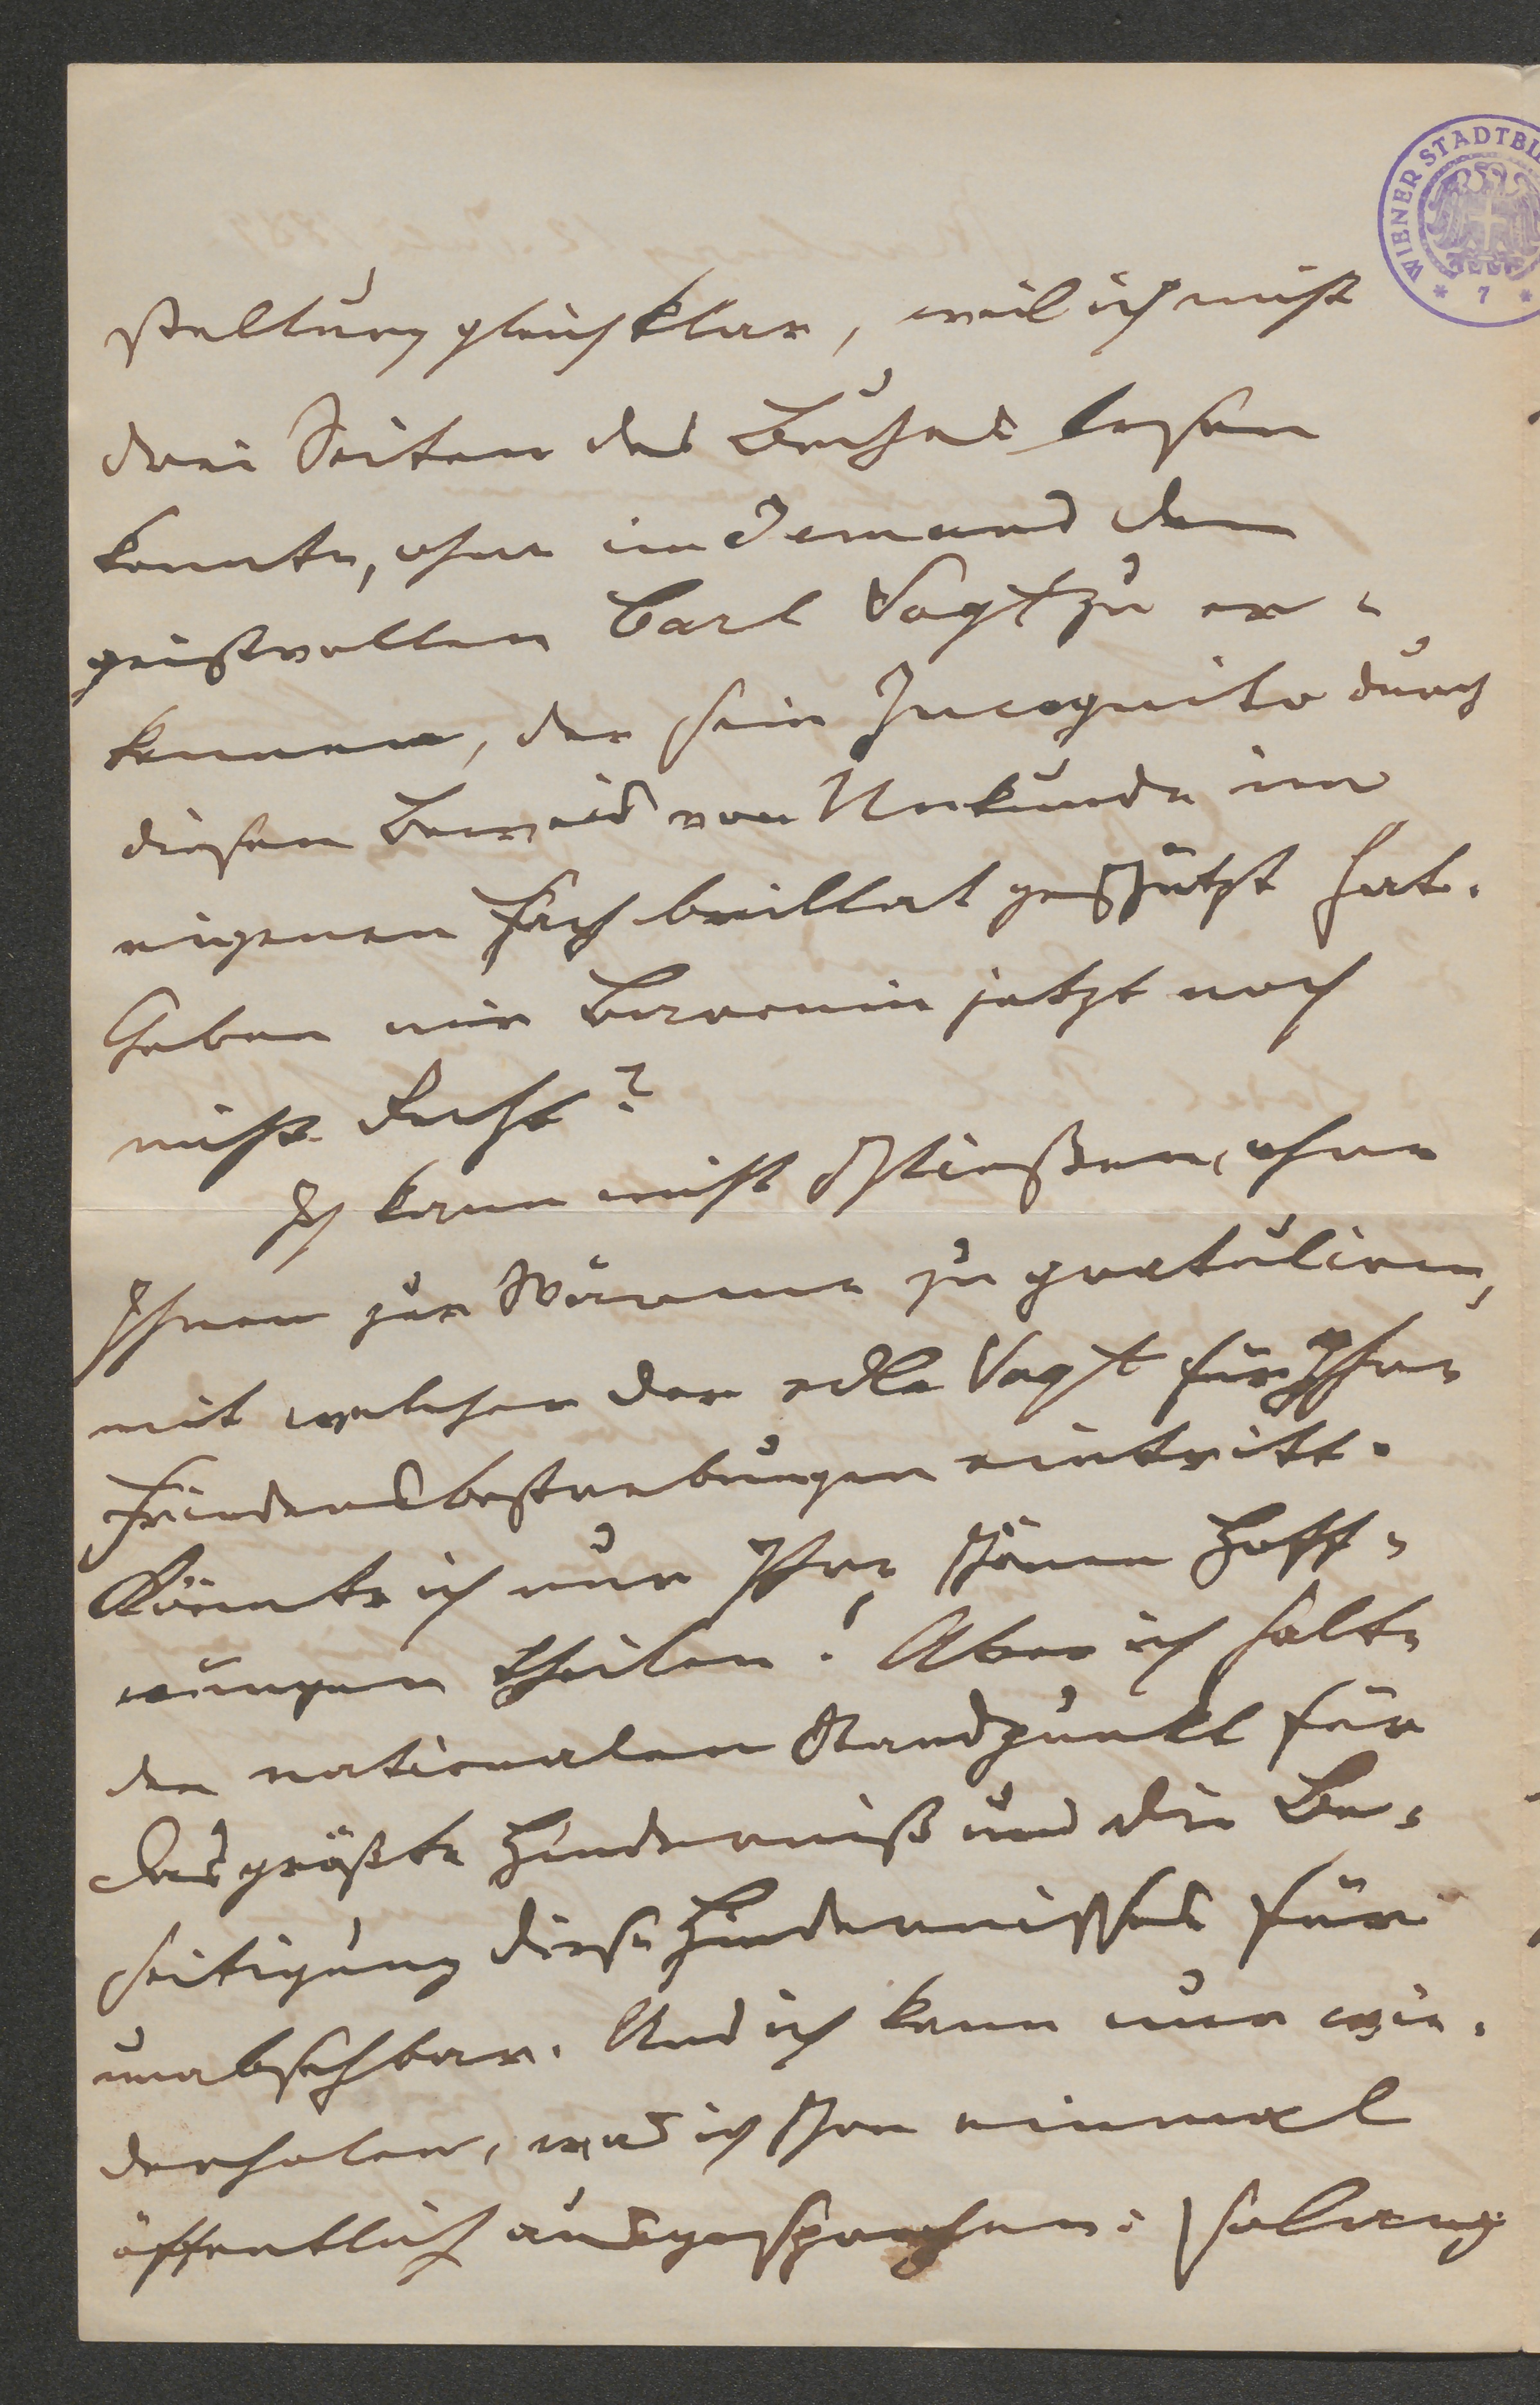 WIENER STADTBI
* 7 *
stellung gleich klar, weil ich nicht
drei Seiten des Buches lesen
konnte, ohne im Jemand den
geistvollen Carl Vogt zu er-
kennen, der sein Incognito durch
diesen Beweis von Unkunde im
eigenen Fach brillat geschützt hat.
Geben mir Baronin jetzt noch
nicht Recht?
Ich kann nicht schließen, ohne
Ihnen zur Wärme zu gratuliren,
mit welcher der edle Vogt für Ihre
Friedensbestrebungen eintritt.
Könnte ich nur Ihre schönen Hoff-
nungen theilen! Aber ich halte
den nationalen Standpunkt für
das größte Hinderniß und die Be-
seitigung dieses Hindernisses für
unabsehbar. Und ich kann nur wie-
derholen, was ich schon einmal
öffentlich ausgesprochen: solang